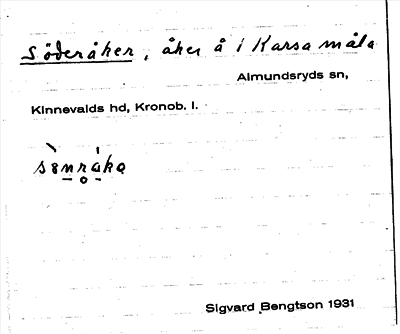 Söderåker, åker å i Karsamåla
Almundsryds sn,
Kinnevalds hd, Kronob. l.
Sigvard Bengtson 1931